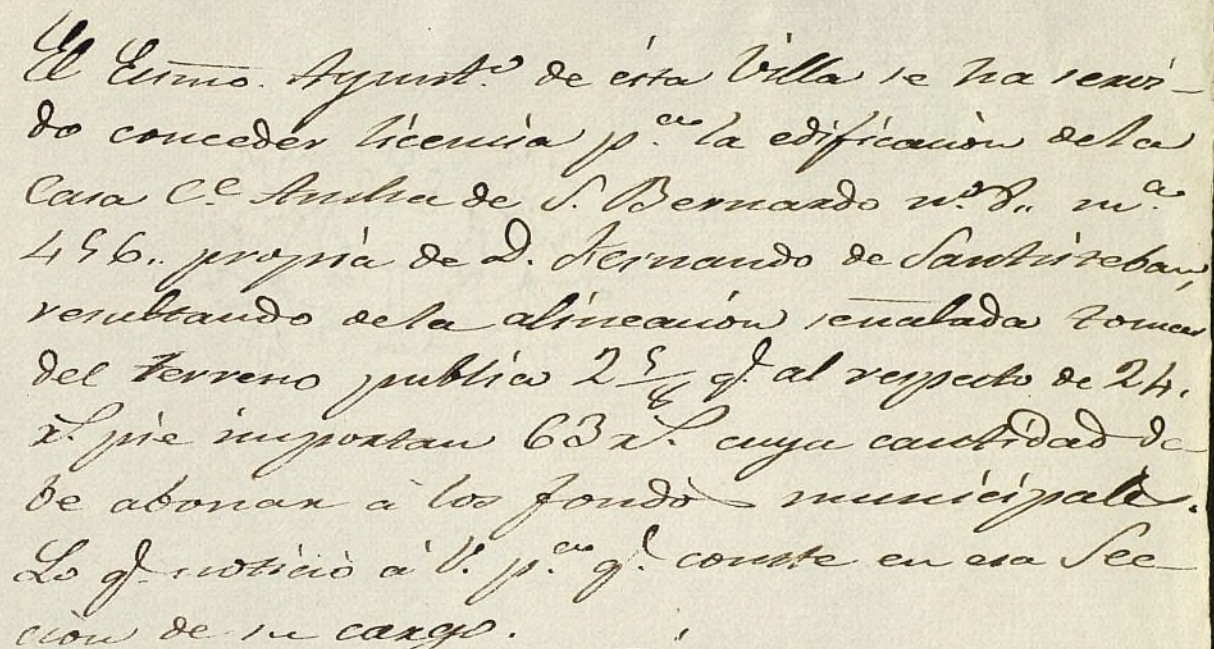 El Exmo. Ayunt.º de ésta Villa se ha servi-
do conceder licencia p.ª la edificación de la
Casa C.e Ancha de S. Bernardo n.º 8,, m.ª
456,, propia de D. Fernando de Santisteban,
resultando de la alineación señalada tomar
del terreno publico 2 5/8 q.s al respecto de 24.
r.s pie importan 63 r.s cuya cantidad de-
be abonar à los fondos municipales.
Lo q.e noticiò à V. p.ª q.e conste en esa Sec
ción de su cargo.